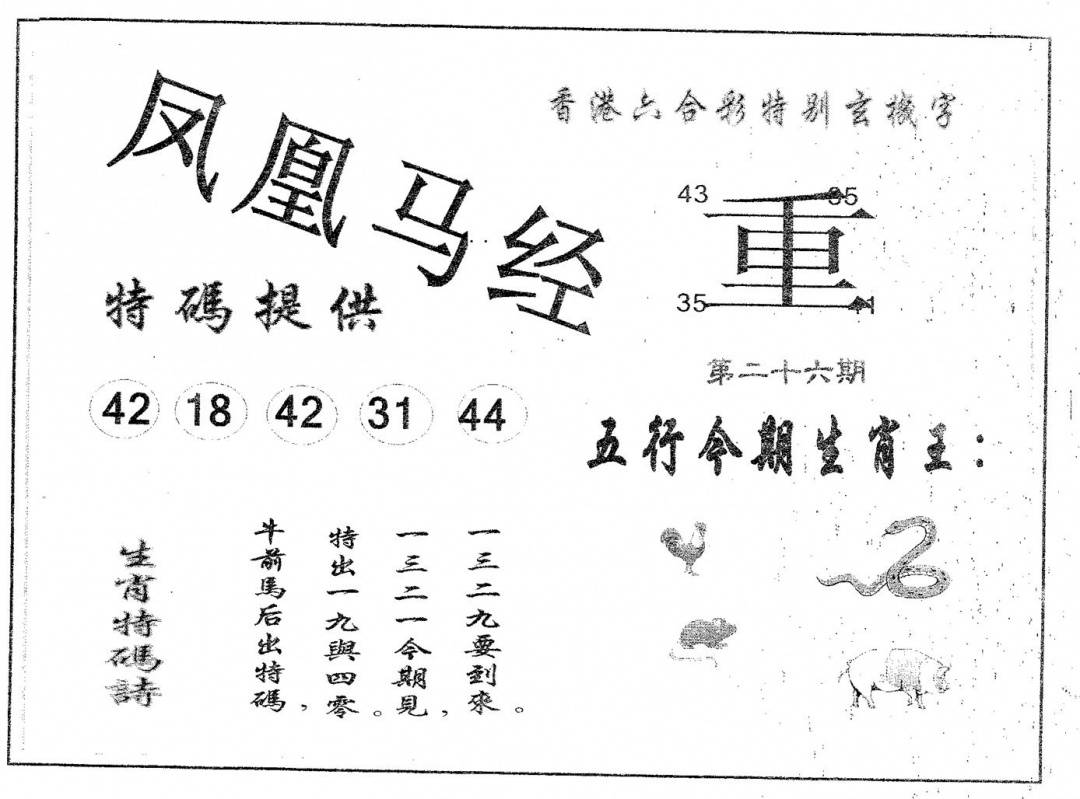 凤凰马经
香港六合彩特别玄機字
43
重
35
特碼提供
第二十六期
42 18 42 31 44
五行今期生肖王：
生肖特碼詩
牛前馬后出特碼，
特出一九與四零。
一三二一今期見，
一三二九要到來。